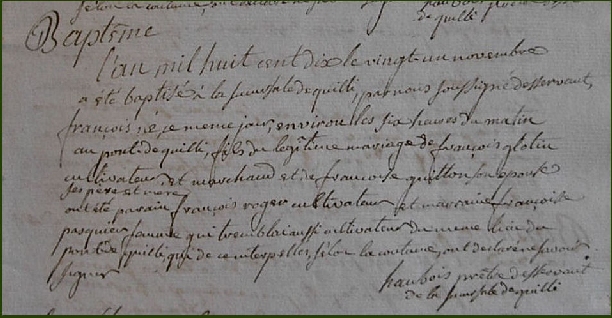 de quilli
Baptême
L'an mil huit cent dix le vingt un novembre
a été baptisé à la succursale de quilli, par nous soussigné desservant,
françois, né ce meme jour, environ les six heures du matin
au pont-de quilli, fils du légitime mariage de françois glotin
cultivateur, et marchand et de françoise quitton son epouse
ses père et mère
ont été parain françois roger cultivateur et marraine françoise
pasquier femme qui tremblai aussi cultivateur du meme lieu du
pont de quilli, qui de ce interpellés, selon la coutume, ont declaré ne savoir
signer
haubois prêtre desservant
de la succursale de quilli